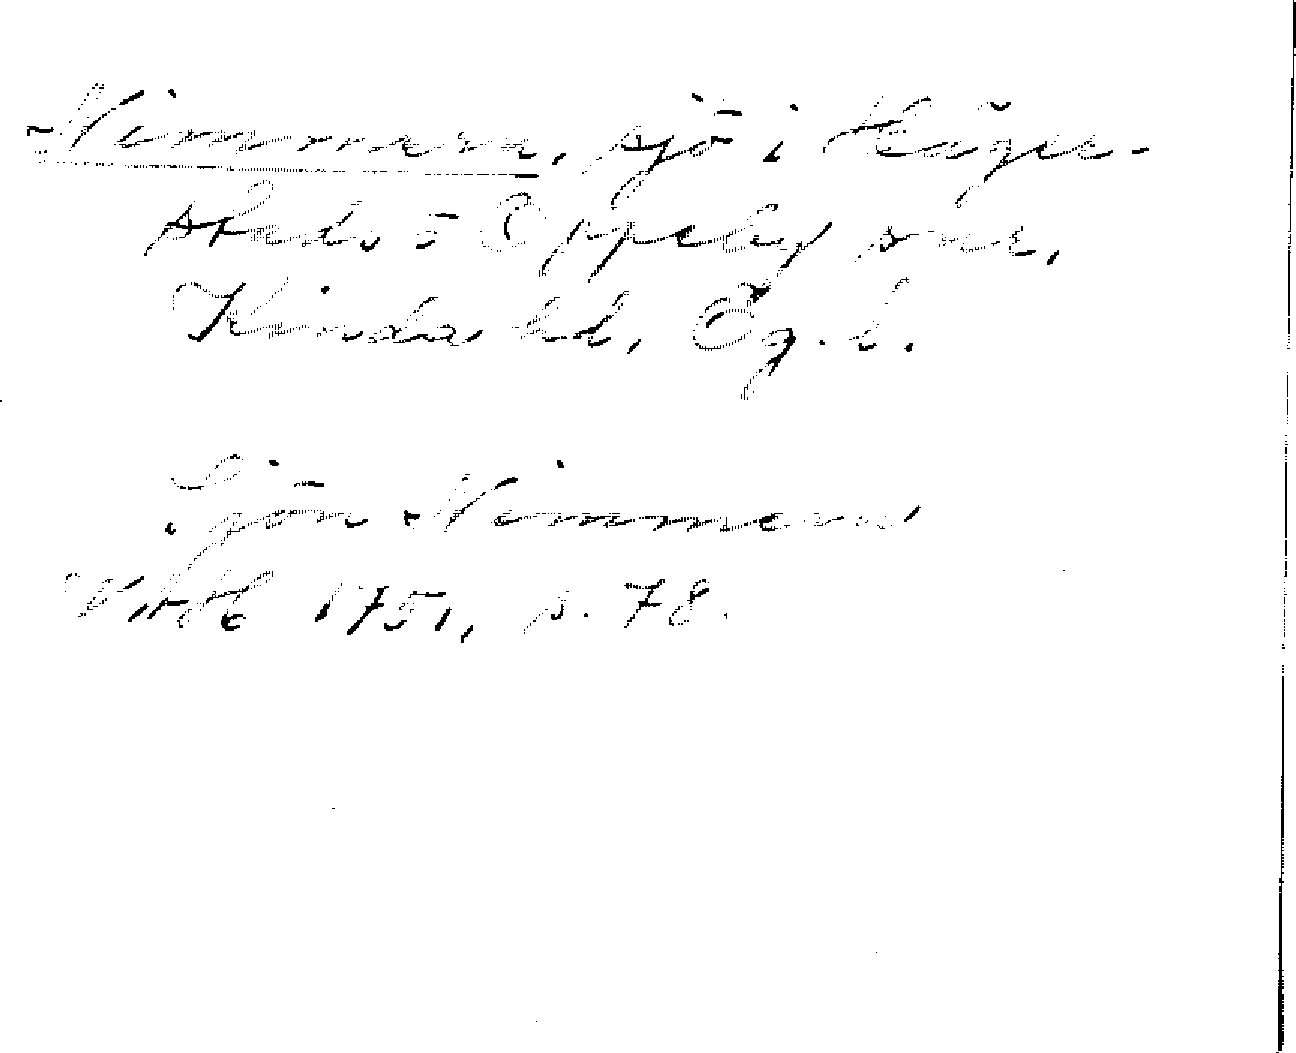 Nimmern, sjö i Häger-
stads o Oppeby snr,
Kinda hd, Ög. l.
Sjön Nimmern
VAH 1751, s. 78.